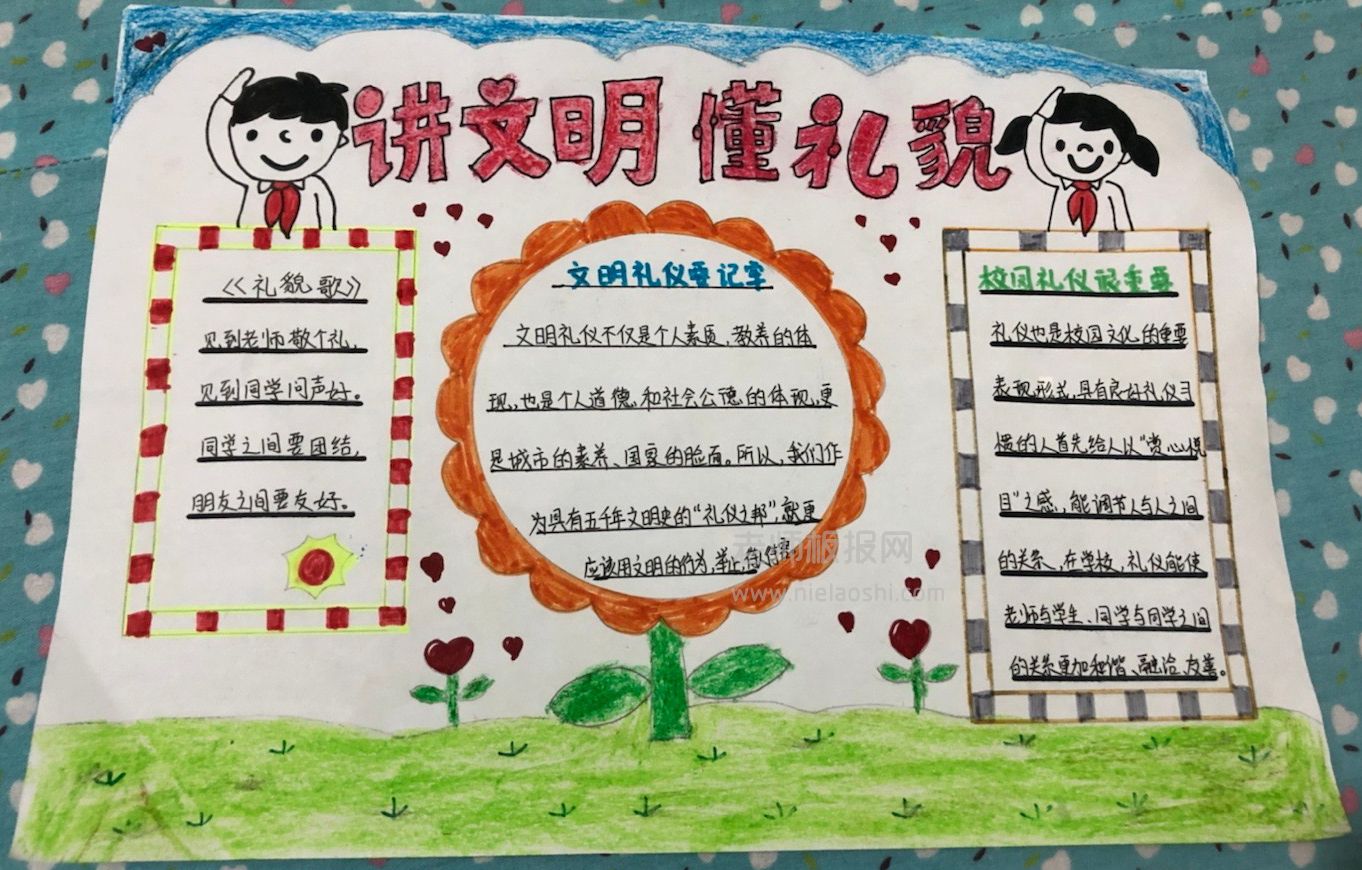 讲文明 懂礼貌
《礼貌歌》
见到老师敬个礼，
见到同学问声好。
同学之间要团结，
朋友之间要友好。
文明礼仪要记牢
文明礼仪不仅是个人素质、教养的体
现，也是个人道德和社会公德的体现，更
是城市的素养、国家的脸面。所以，我们作
为具有五千年文明史的“礼仪之邦”，就更
应该用文明的行为、举止，
校园礼仪很重要
礼仪也是校园文化的重要
表现形式，具有良好礼仪习
惯的人首先给人以“赏心悦
目”之感，能调节人与人之间
的关系，在学校，礼仪能使
老师与学生、同学与同学之间
的关系更加和谐、融洽、友善。
老师板报网
www.nielaoshi.com